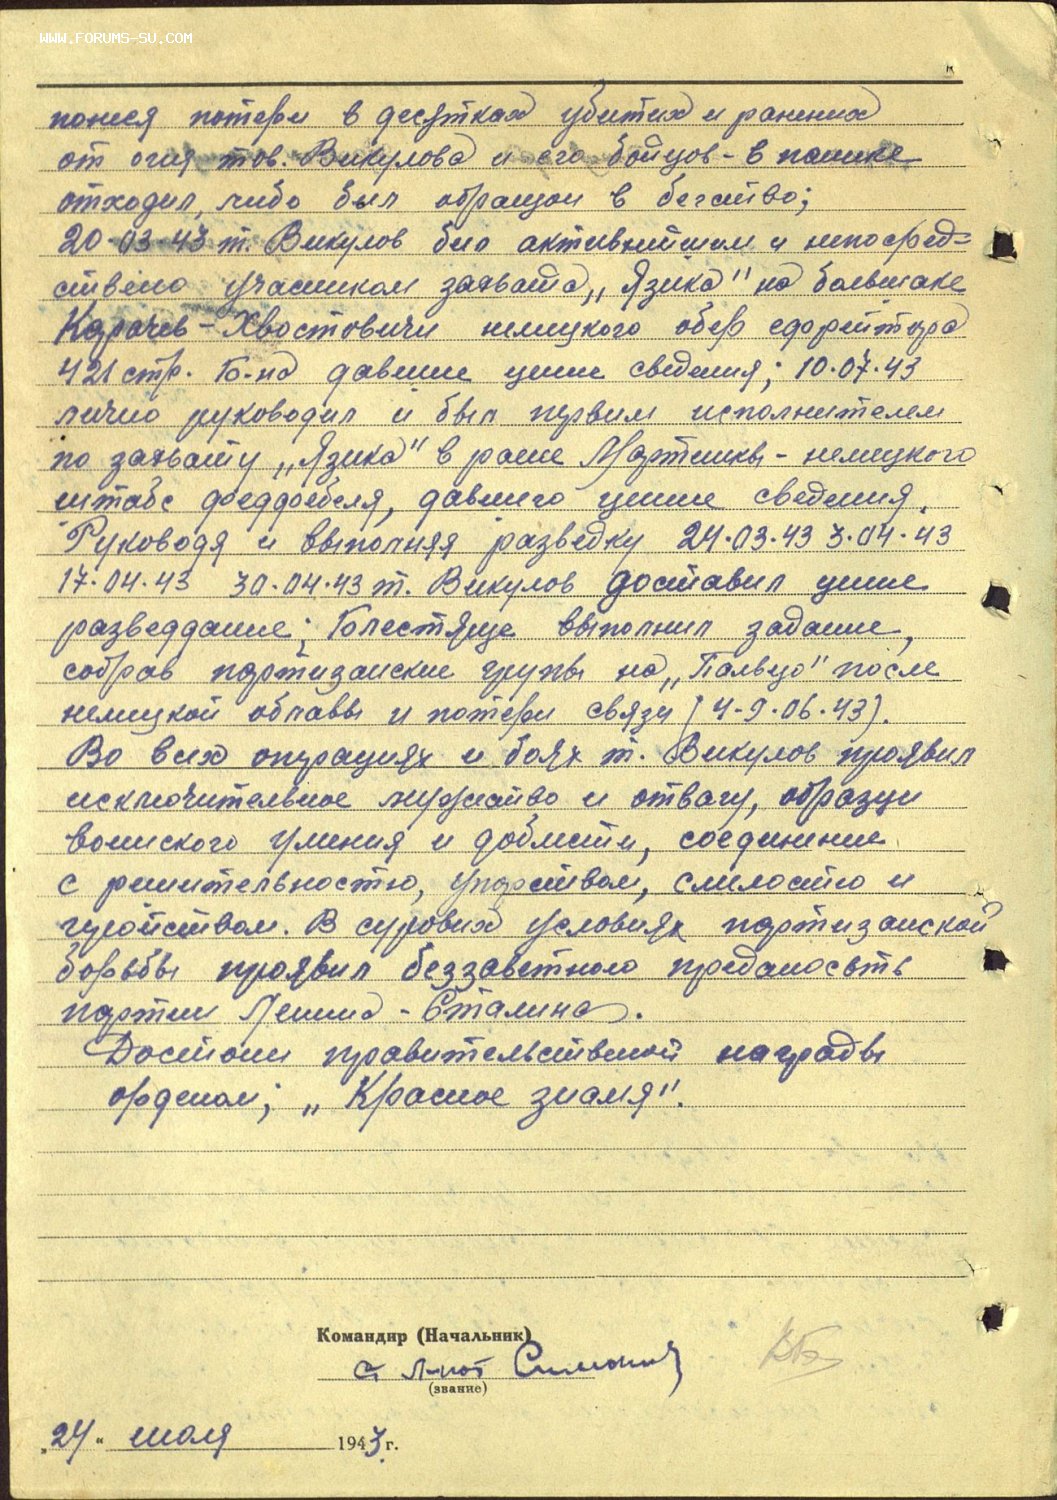 WWW.FORUMS-SU.COM
понеся потери в десятках убитых и раненых
от огня тов. Викулова и его бойцов - в панике
отходил, либо был обращен в бегство;
20-03-43 т. Викулов был активнейшим и непосред=
ствено участником захвата „Языка" на большаке
Карачев - Хвостовичи немецкого обер ефрейтора
421 стр. б-на давшие ценые сведения; 10.07.43
лично руководил и был первым исполнителем
по захвату „Языка" в районе Мартынки - немецкого
штабс фельдфебеля, давшего ценые сведения.
Руководя и выполняя разведку 24.03.43 3.04.43
17.04.43 30.04.43 т. Викулов доставил ценые
разведданые; Блестяще выполнил задание,
собрав партизанские групы на „Пальцо" после
немецкой облавы и потери связи (4-9.06.43).
Во всех операциях и боях т. Викулов проявил
исключительное мужество и отвагу, образцы
воинского умения и доблести, соединение
с решительностью, упорством, смелостью и
геройством. В суровых условиях партизанской
борьбы проявил беззаветного преданосьть
партии Ленина - Сталина.
Достоин правительственной награды
орденом; „Красное знамя".
Командир (Начальник)
ст л-нт
(звание)
„24" июля 1943 г.